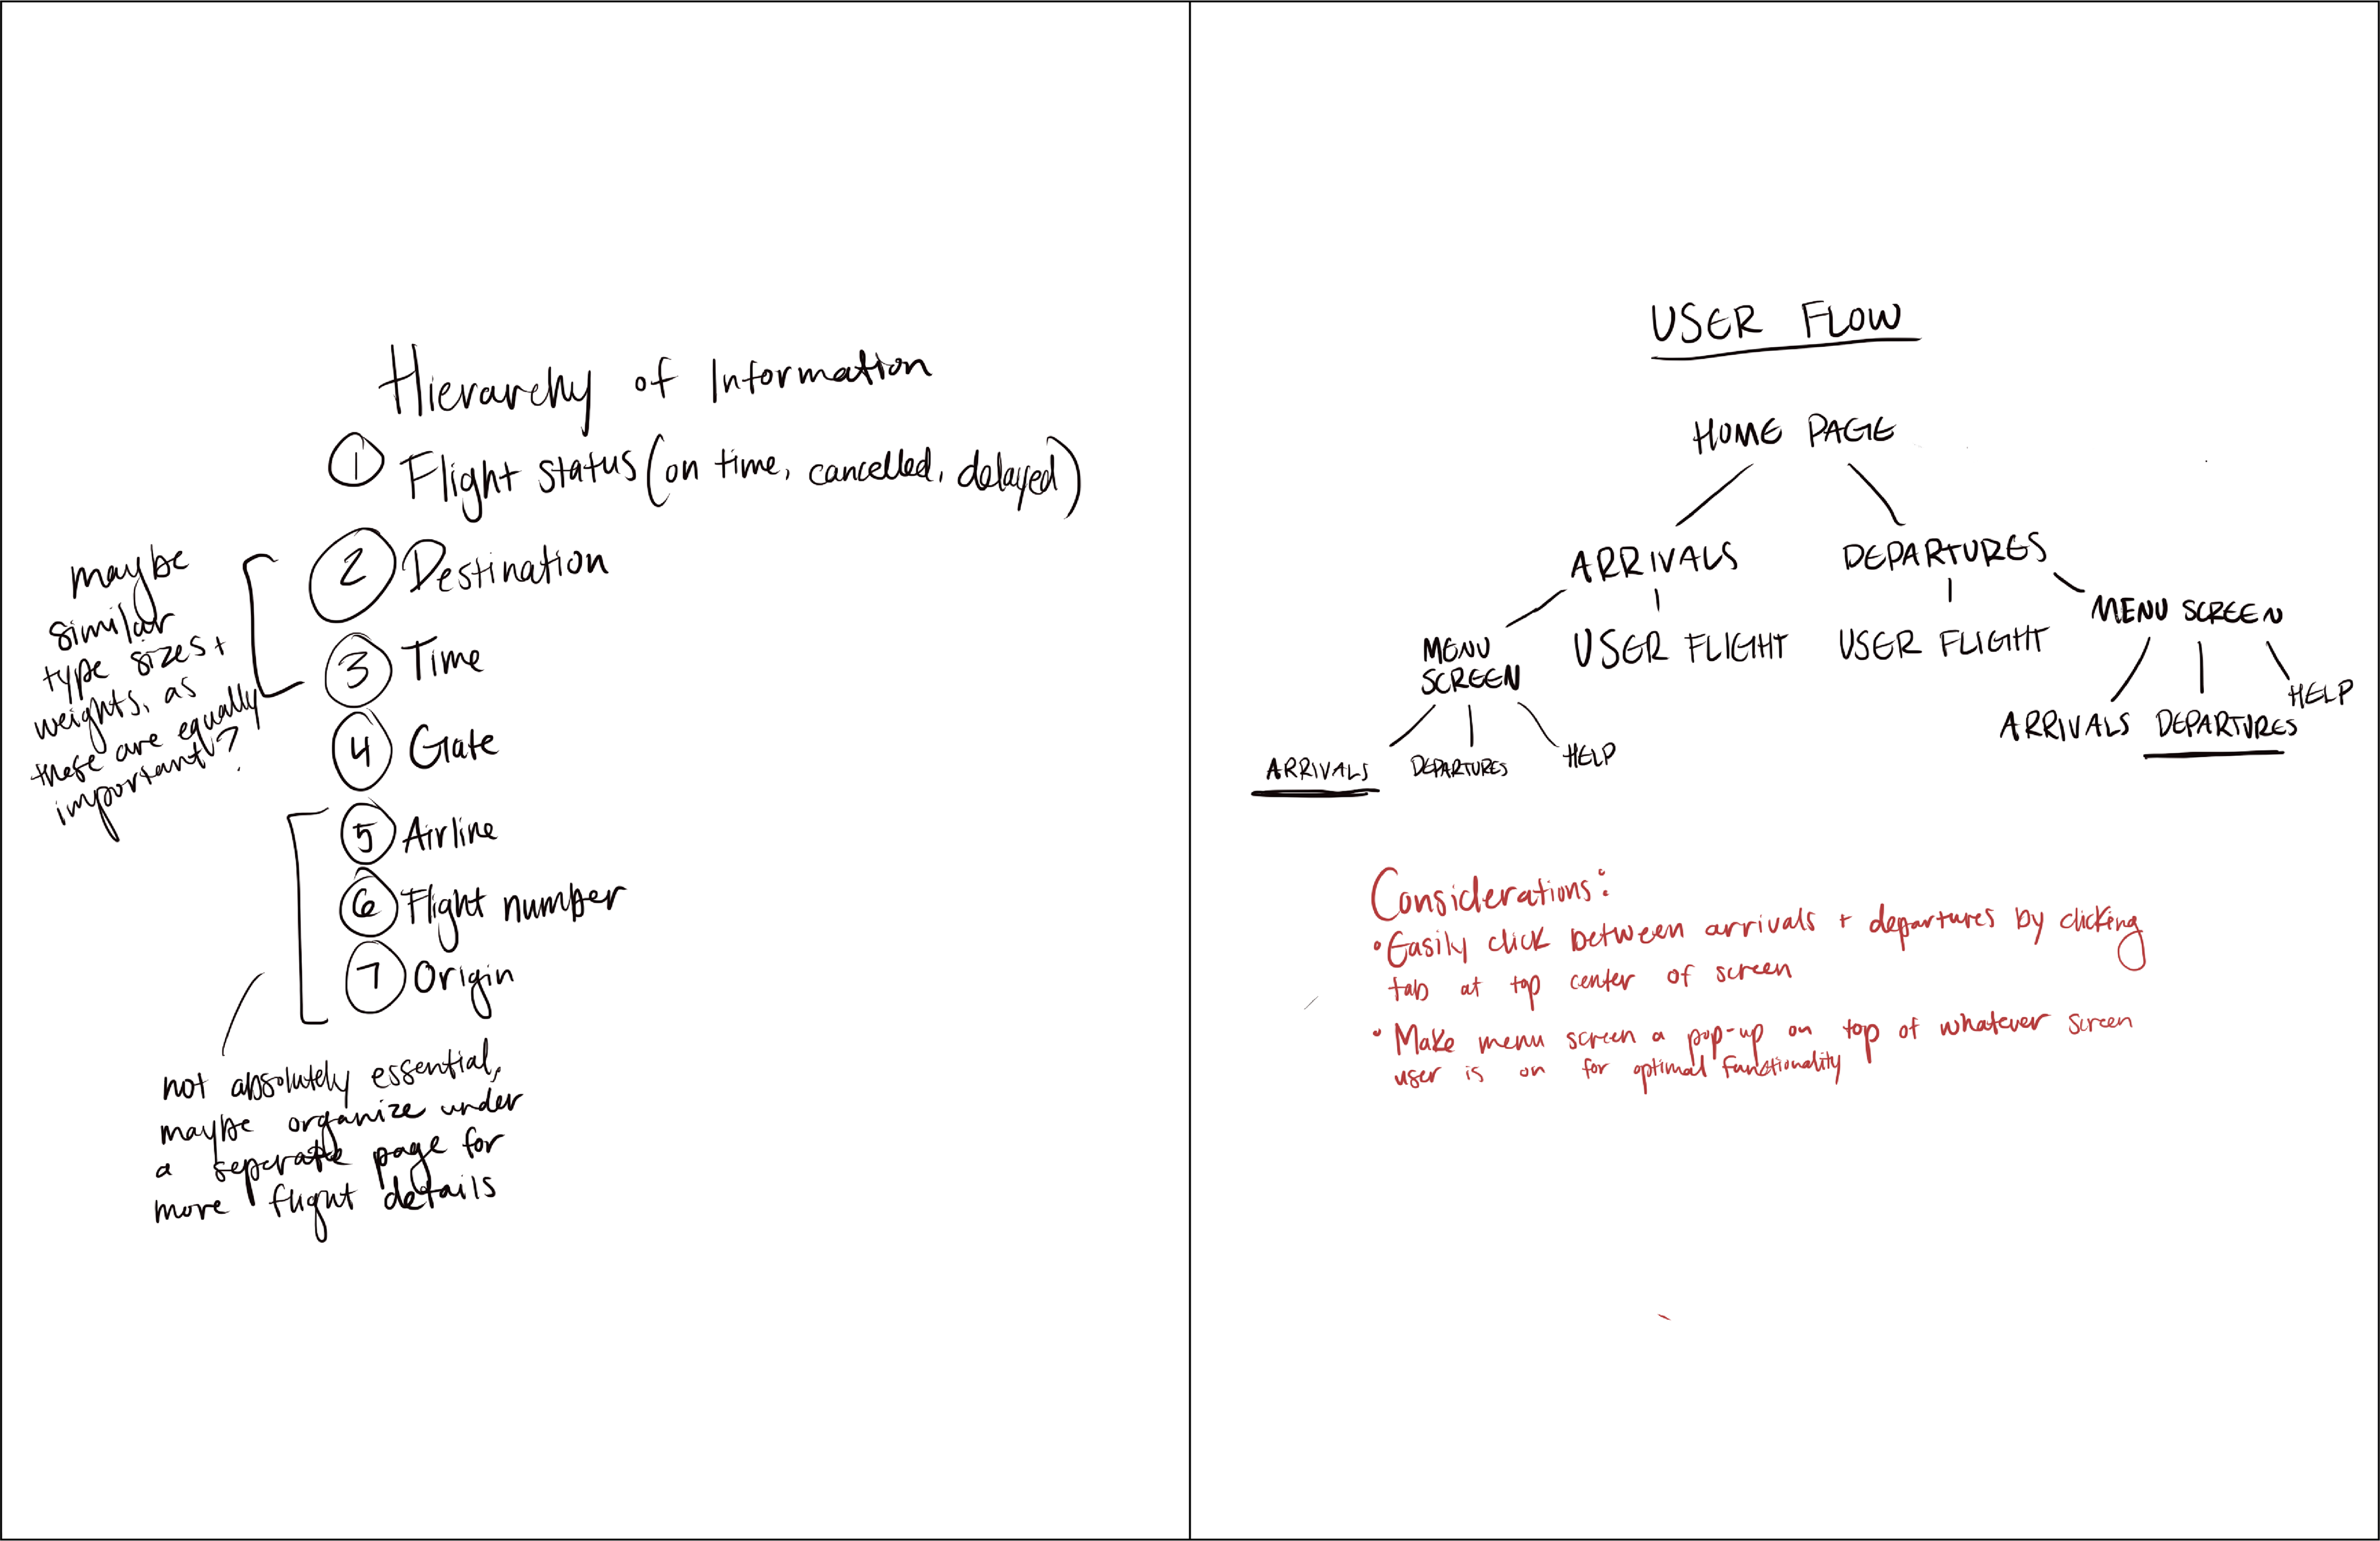 Hierarchy of Information
1 Flight status (on time, cancelled, delayed)
2 Destination
3 Time
4 Gate
5 Airline
6 Flight number
7 Origin
maybe
similar
type sizes +
weights, as
these are equally
important?
not absolutely essential,
maybe organize under
a seperate page for
more flight details
USER FLOW
HOME PAGE
ARRIVALS DEPARTURES
MENU SCREEN
USER FLIGHT USER FLIGHT
MENU
SCREEN
ARRIVALS DEPARTURES HELP
ARRIVALS DEPARTURES HELP
Considerations:
• Easily click between arrivals + departures by clicking
tab at top center of screen
• Make menu screen a pop-up on top of whatever screen
user is on for optimal functionality